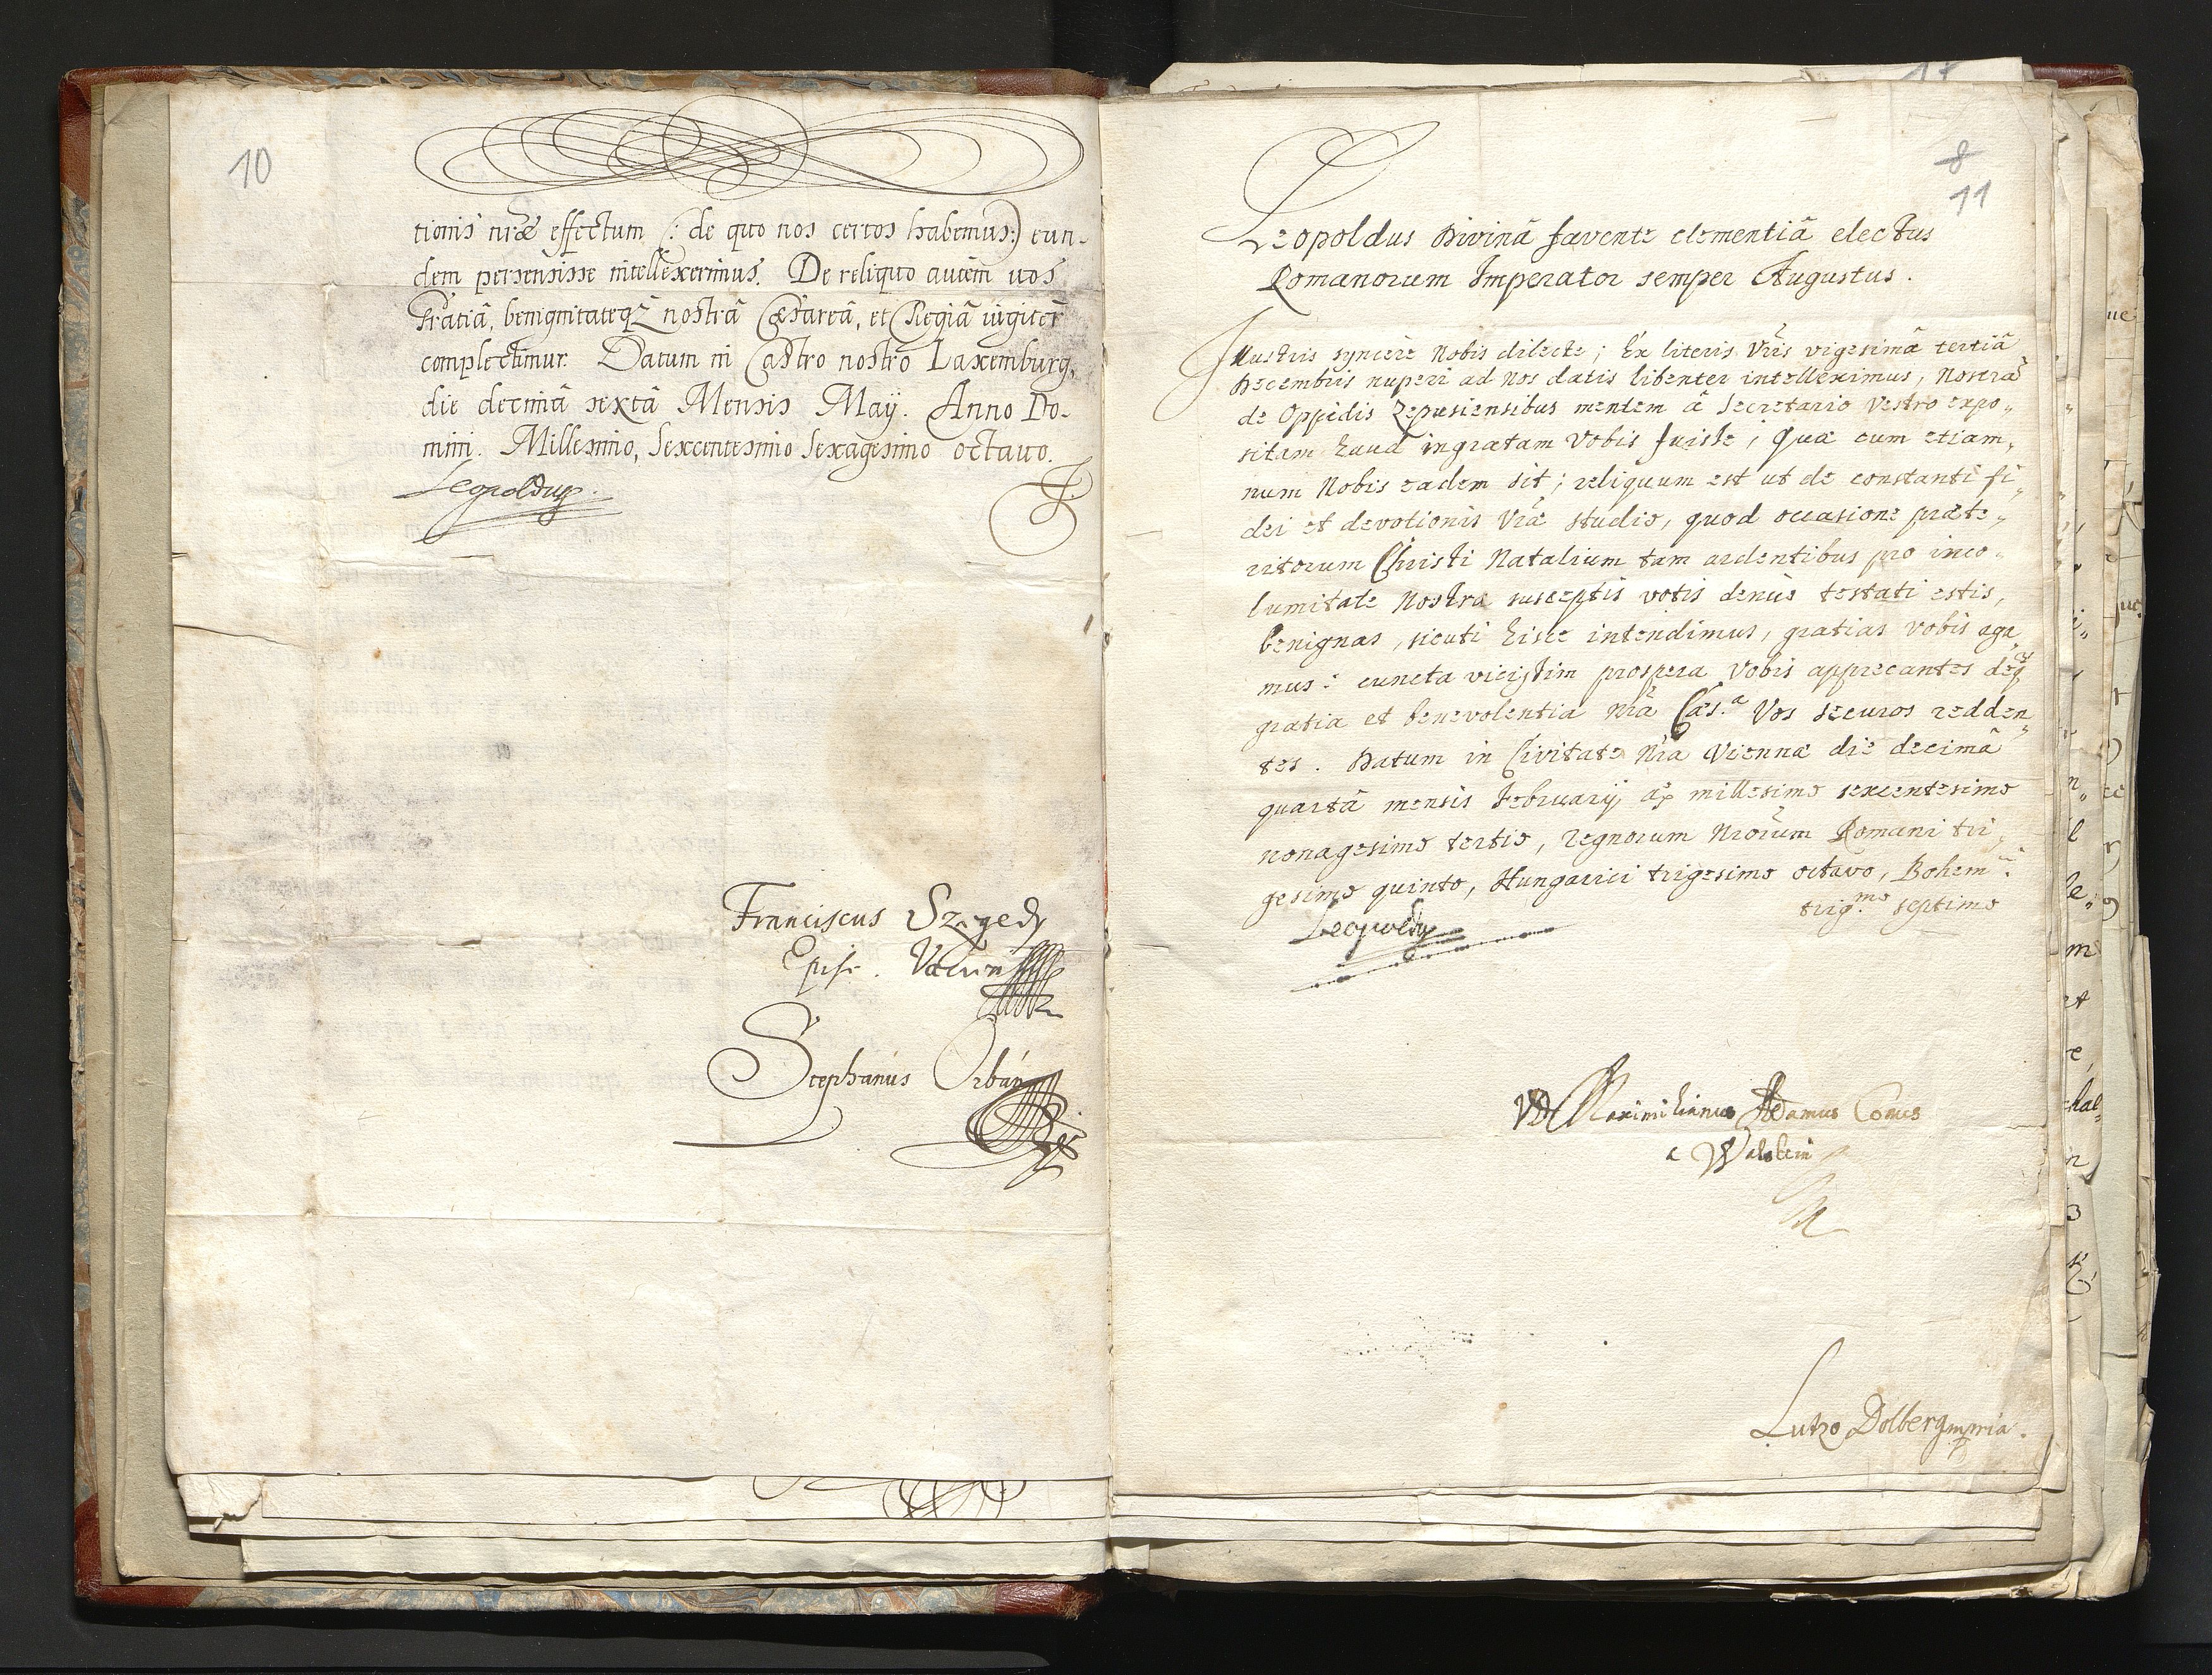 10
tionis nrae effectum (: de quo nos certos habemus:) eun-
dem persensisse intellexerimus. De reliquo autem vos
Gratiâ, benignitateq́ nostrâ Caesareâ, et Regiâ iugiter
complectimur. Datum in Castro nostro Laxemburg,
die decimâ sextâ Mensis Maÿ. Anno Do-
mini. Millesimo, Sexcentesimo Sexagesimo octavo.
Leopoldus.
Franciscus Szegedy
Episc. Vacien
Stephanus Orbán
8
11
Leopoldus Divinâ favente clementiâ electus
Romanorum Imperator semper Augustus.
Illustris syncerè Nobis dilecte; Ex literis Vris vigesimâ tertiâ
Decembris nuperi ad Nos datis libenter intelleximus, Nostrā
de Oppidis Zepusiensibus mentem â Secretario Vestro expo„
sitam haud ingratam Vobis fuisse; Quae cum etiam„
num Nobis eadem sit; reliquum est ut de constanti fi„
dei et devotionis Vrae studio, quod occasione praete„
ritorum Christi Natalium tam ardentibus pro inco„
lumitate Nostra susceptis votis denuò testati estis,
benignas, sicuti hisce intendimus, gratias vobis aga„
mus: cuncta vicissim prospera Vobis apprecantes deq́
gratia et benevolentia Nrâ Caes.ᵃ Vos securos redden„
tes. Datum in Civitate Nra Viennae die decimâ
quartâ mensis Februarij aō millesimo sexcentesimo
nonagesimo tertio, Regnorum Nrorum Romani tri„
gesimo quinto, Hungarici trigesimo octavo, Bohemⁱ.
trig.ᵐᵒ septimo
Leopoldus
Vᵗ Maximilianus Adamus Comes
a Waldstein
Lutzo Dolberg mpria.